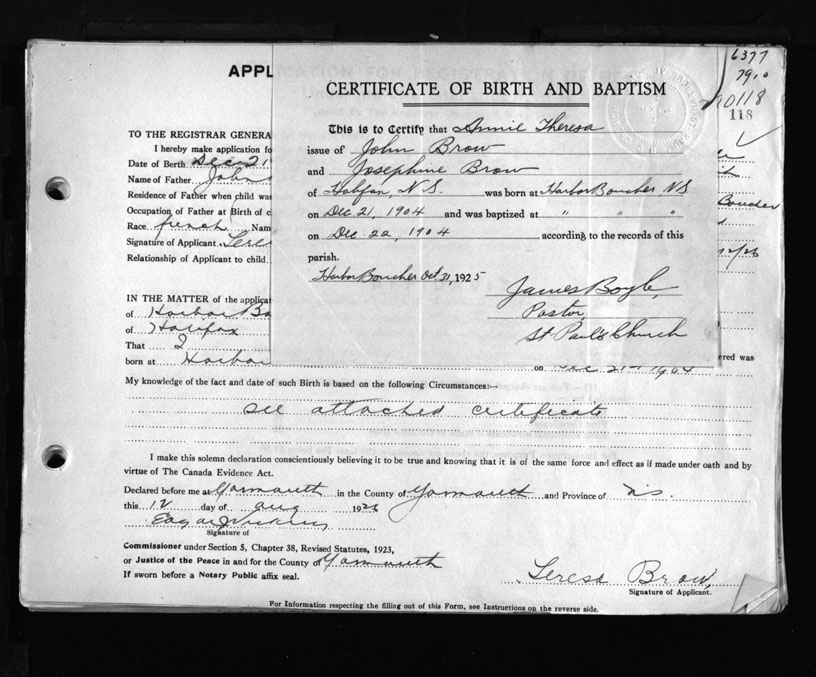 6377
7910
90118
118
APPL
CERTIFICATE OF BIRTH AND BAPTISM
This is to Certify that Annie Theresa
issue of John Brow
and Josephine Brow
of Halifax, N.S. was born at Harbor Boucher NS
on Dec 21, 1904 and was baptized at " " "
on Dec 22, 1904 according to the records of this
parish.
Harbor Boucher Oct 31, 1925
James Boyle,
Pastor,
St Paul's Church
TO THE REGISTRAR GENERA
I hereby make application fo
Date of Birth Dec 21
Name of Father John
Residence of Father when child was
Occupation of Father at Birth of c
Race french Nam
Signature of Applicant Teres
Relationship of Applicant to child
Boucher
IN THE MATTER of the applicat
of Harbor Bo
of Halifax
That I
born at Harbor
ered was
on Dec 21st 1904
My knowledge of the fact and date of such Birth is based on the following Circumstances:--
see attached certificate
I make this solemn declaration conscientiously believing it to be true and knowing that it is of the same force and effect as if made under oath and by
virtue of The Canada Evidence Act.
Declared before me at Yarmouth in the County of Yarmouth and Province of N.S.
this 12 day of Aug 1926
Signature of
Commissioner under Section 5, Chapter 38, Revised Statutes, 1923,
or Justice of the Peace in and for the County of Yarmouth
If sworn before a Notary Public affix seal.
Teresa Brow,
Signature of Applicant.
For Information respecting the filling out of this Form, see Instructions on the reverse side.